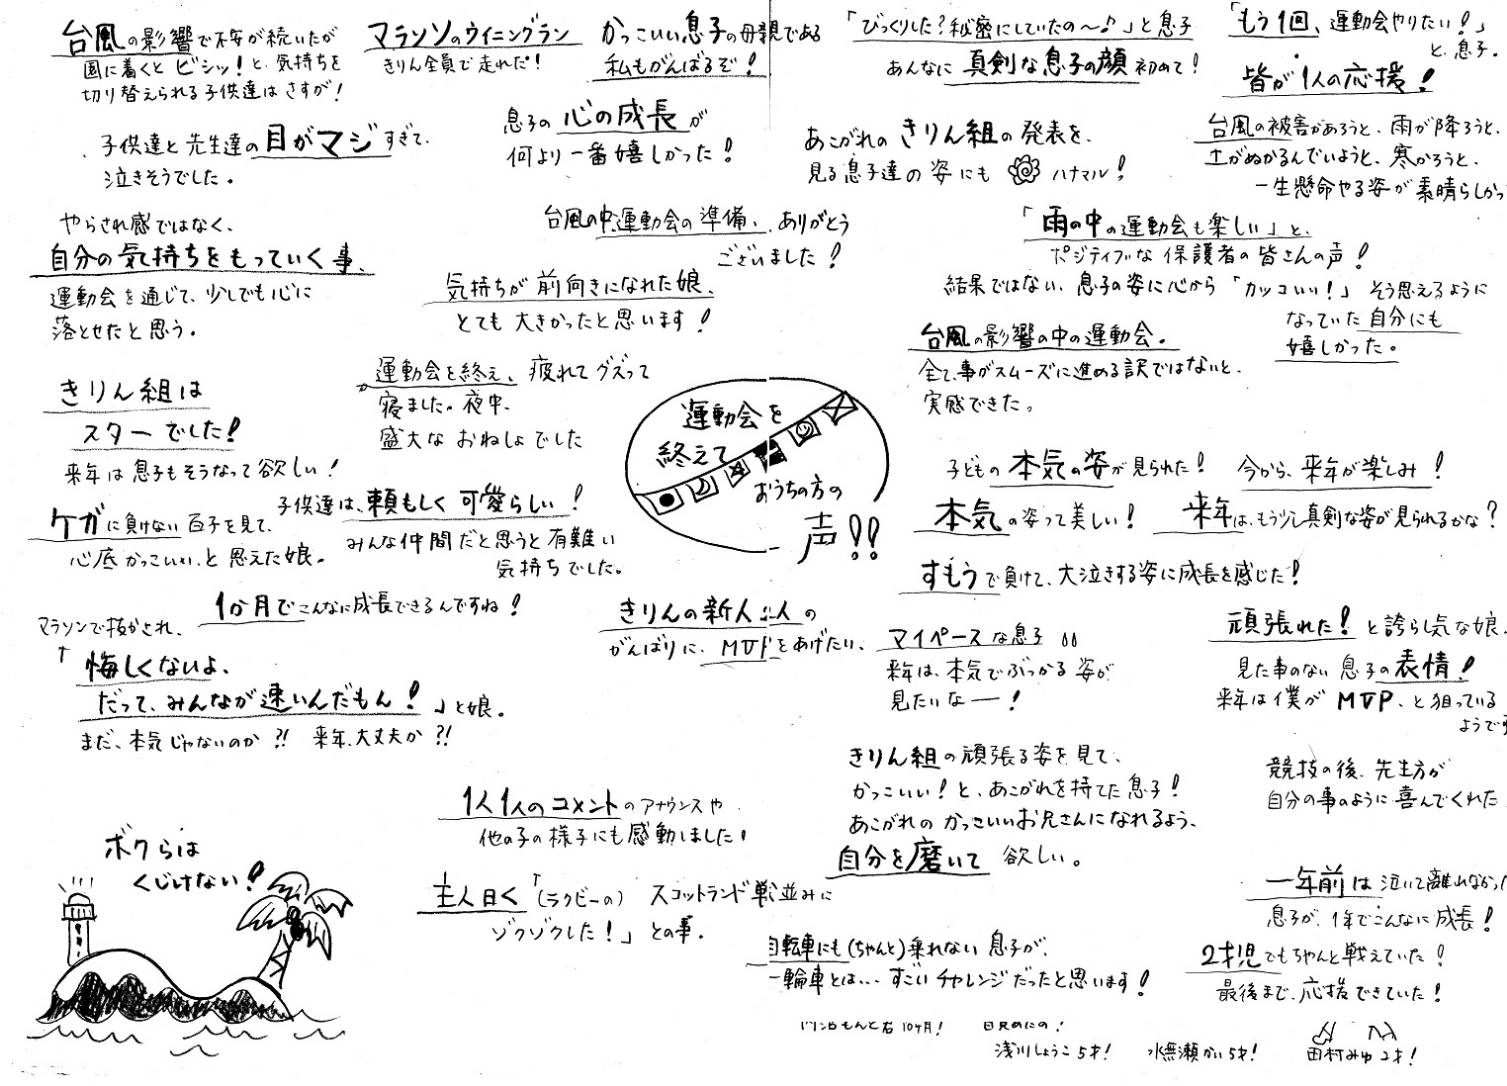 台風の影響で不安が続いたが
園に着くと ビシッ！と、気持ちを
切り替えられる子供達はさすが！
マラソンのウイニングラン
きりん全員で走れた！
かっこいい息子の母親である
私もがんばるぞ！
「びっくりした？秘密にしていたの〜♪」と息子
あんなに 真剣な息子の顔 初めて！
「もう1回、運動会やりたい！」
と、息子。
皆が1人の応援！
子供達と先生達の目がマジすぎて、
泣きそうでした。
息子の 心の成長が
何より一番嬉しかった！
あこがれの きりん組の発表を、
見る息子達の姿にも ハナマル！
台風の被害があろうと、雨が降ろうと、
土がぬかるんでいようと、寒かろうと、
一生懸命やる姿が素晴らしかっ
やらされ感ではなく、
自分の気持ちをもっていく事、
運動会を通じて、少しでも心に
落とせたと思う。
台風の中、運動会の準備、ありがとう
ございました！
気持ちが前向きになれた娘、
とても大きかったと思います！
「雨の中の運動会も楽しい」と、
ポジティブな保護者の皆さんの声！
結果ではない、息子の姿に心から「カッコいい！」そう思えるように
なっていた自分にも
嬉しかった。
台風の影響の中の運動会。
全て、事がスムーズに進める訳ではないと、
実感できた。
きりん組は
スターでした！
来年は息子もそうなって欲しい！
運動会を終え、疲れてグズって
寝ました。夜中、
盛大なおねしょでした
運動会を
終えて
おうちの方の
声!!
子どもの 本気の姿が見られた！
今から、来年が楽しみ！
本気の姿って美しい！
来年は、もう少し真剣な姿が見られるかな？
すもうで負けて、大泣きする姿に成長を感じた！
ケガに負けない 子を見て、
心底かっこいい、と思えた娘。
子供達は、頼もしく可愛らしい！
みんな仲間だと思うと有難い
気持ちでした。
1か月でこんなに成長できるんですね！
マラソンで抜かされ、
「悔しくないよ、
だって、みんなが速いんだもん！」と娘。
まだ、本気じゃないのか?! 来年、大丈夫か?!
きりんの新人 人の
がんばりに、MVPをあげたい、
マイペースな息子
来年は、本気でぶつかる姿が
見たいなー！
頑張れた！と誇らし気な娘、
見た事のない息子の表情！
来年は僕がMVP、と狙っている
ようで
きりん組の頑張る姿を見て、
かっこいい！と、あこがれを持てた息子！
あこがれの かっこいいお兄さんになれるよう、
自分を磨いて欲しい。
競技の後、先生方が
自分の事のように喜んでくれた
1人1人のコメントのアナウンスや
他の子の様子にも感動しました！
主人曰く「(ラグビーの) スコットランド戦並みに
ゾクゾクした！」との事。
一年前は泣いて離れなかっ
息子が、1年でこんなに成長！
自転車にも(ちゃんと)乗れない息子が、
一輪車とは... すごいチャレンジだったと思います！
2才児でもちゃんと戦えていた！
最後まで、応援できていた！
ボクらは
くじけない！
浅川しょうこ 5才！
水無瀬かい 5才！
田村みゆ 2才！